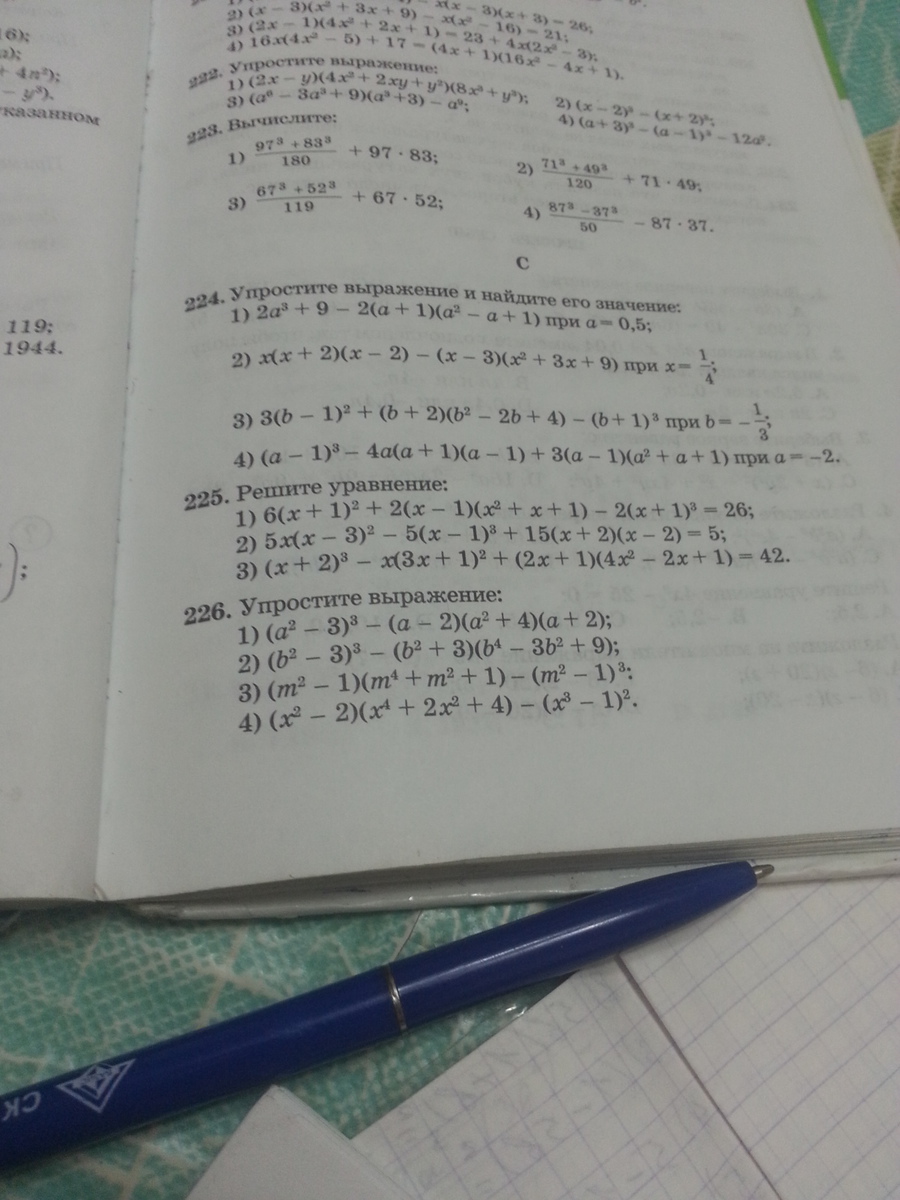 16);
+ 4n²);
– y³).
казанном
119;
1944.
);
x(x – 3)(x + 3) = 26;
2) (x – 3)(x² + 3x + 9) – x(x² – 16) = 21;
3) (2x – 1)(4x² + 2x + 1) = 23 + 4x(2x² – 3);
4) 16x(4x² – 5) + 17 = (4x + 1)(16x² – 4x + 1).
222. Упростите выражение:
1) (2x – y)(4x² + 2xy + y²)(8x³ + y³); 2) (x – 2)³ – (x + 2)³;
3) (a⁶ – 3a³ + 9)(a³ + 3) – a⁹; 4) (a + 3)³ – (a – 1)³ – 12a².
223. Вычислите:
1) (97³ + 83³)/180 + 97 · 83; 2) (71³ + 49³)/120 + 71 · 49;
3) (67³ + 52³)/119 + 67 · 52; 4) (87³ – 37³)/50 – 87 · 37.
С
224. Упростите выражение и найдите его значение:
1) 2a³ + 9 – 2(a + 1)(a² – a + 1) при a = 0,5;
2) x(x + 2)(x – 2) – (x – 3)(x² + 3x + 9) при x = 1/4;
3) 3(b – 1)² + (b + 2)(b² – 2b + 4) – (b + 1)³ при b = –1/3;
4) (a – 1)³ – 4a(a + 1)(a – 1) + 3(a – 1)(a² + a + 1) при a = –2.
225. Решите уравнение:
1) 6(x + 1)² + 2(x – 1)(x² + x + 1) – 2(x + 1)³ = 26;
2) 5x(x – 3)² – 5(x – 1)³ + 15(x + 2)(x – 2) = 5;
3) (x + 2)³ – x(3x + 1)² + (2x + 1)(4x² – 2x + 1) = 42.
226. Упростите выражение:
1) (a² – 3)³ – (a – 2)(a² + 4)(a + 2);
2) (b² – 3)³ – (b² + 3)(b⁴ – 3b² + 9);
3) (m² – 1)(m⁴ + m² + 1) – (m² – 1)³:
4) (x² – 2)(x⁴ + 2x² + 4) – (x³ – 1)².
СК